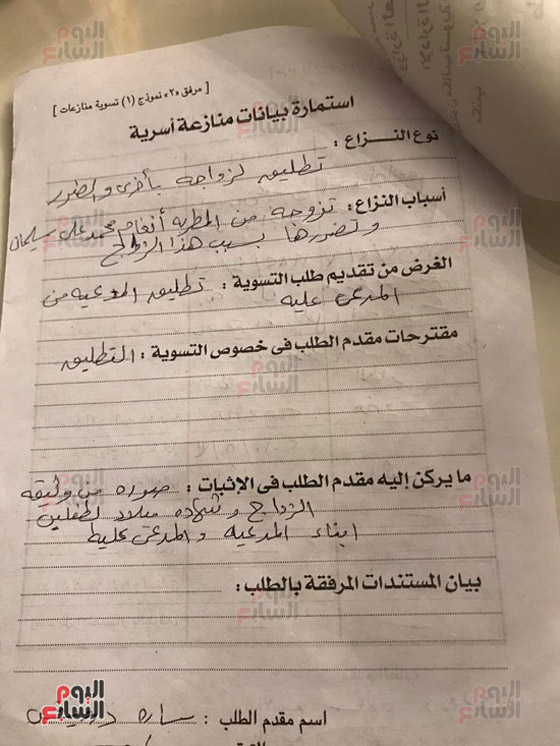 [ مرفق «٢» نموذج (١) تسوية منازعات ]
استمارة بيانات منازعة أسرية
نوع النـــزاع :
تطليق لزواجه بأخرى والضرر
أسباب النزاع : تزوجه من المطربه أنغام محمد على سليمان
وتضررها بسبب هذا الزواج
الغرض من تقديم طلب التسوية : تطليق المدعيه من
المدعى عليه
مقترحات مقدم الطلب فى خصوص التسوية : التطليق
ما يركن إليه مقدم الطلب فى الإثبات : صوره من وثيقه
الزواج وشهاده ميلاد لطفلين
ابناء المدعيه والمدعى عليه
بيان المستندات المرفقة بالطلب :
اسم مقدم الطلب : ساره
اليوم السابع